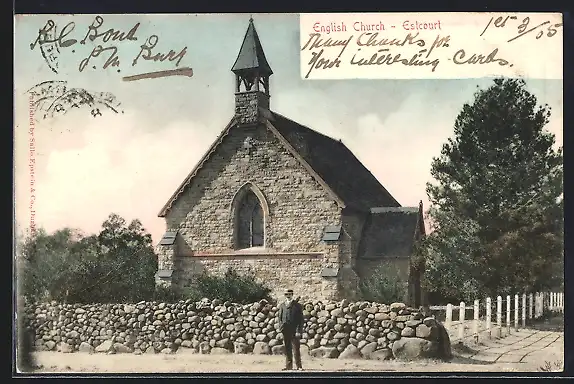 English Church - Estcourt
1st/3/05
Many Thanks for
Your interesting Cards.
Published by Sallo Epstein & Co., Durban